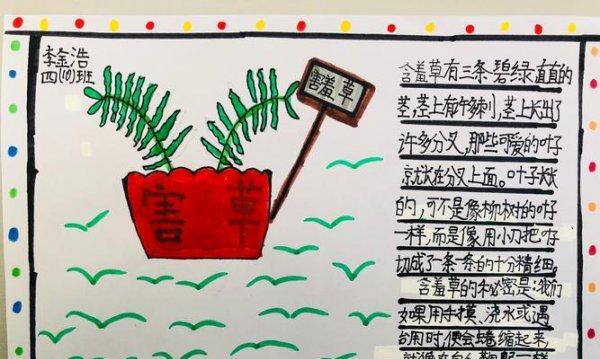 李金浩
四(10)班
害羞草
害草
含羞草有三条碧绿直直的
茎,茎上有许多刺,茎上长出了
许多分叉,那些可爱的叶子
就长在分叉上面。叶子长长
的,可不是像柳树的叶子
一样,而是像用小刀把叶子
切成了一条一条的十分精细。
含羞草的秘密是:我们
如果用手摸、浇水或遇
台用时,便会蜷缩起来,